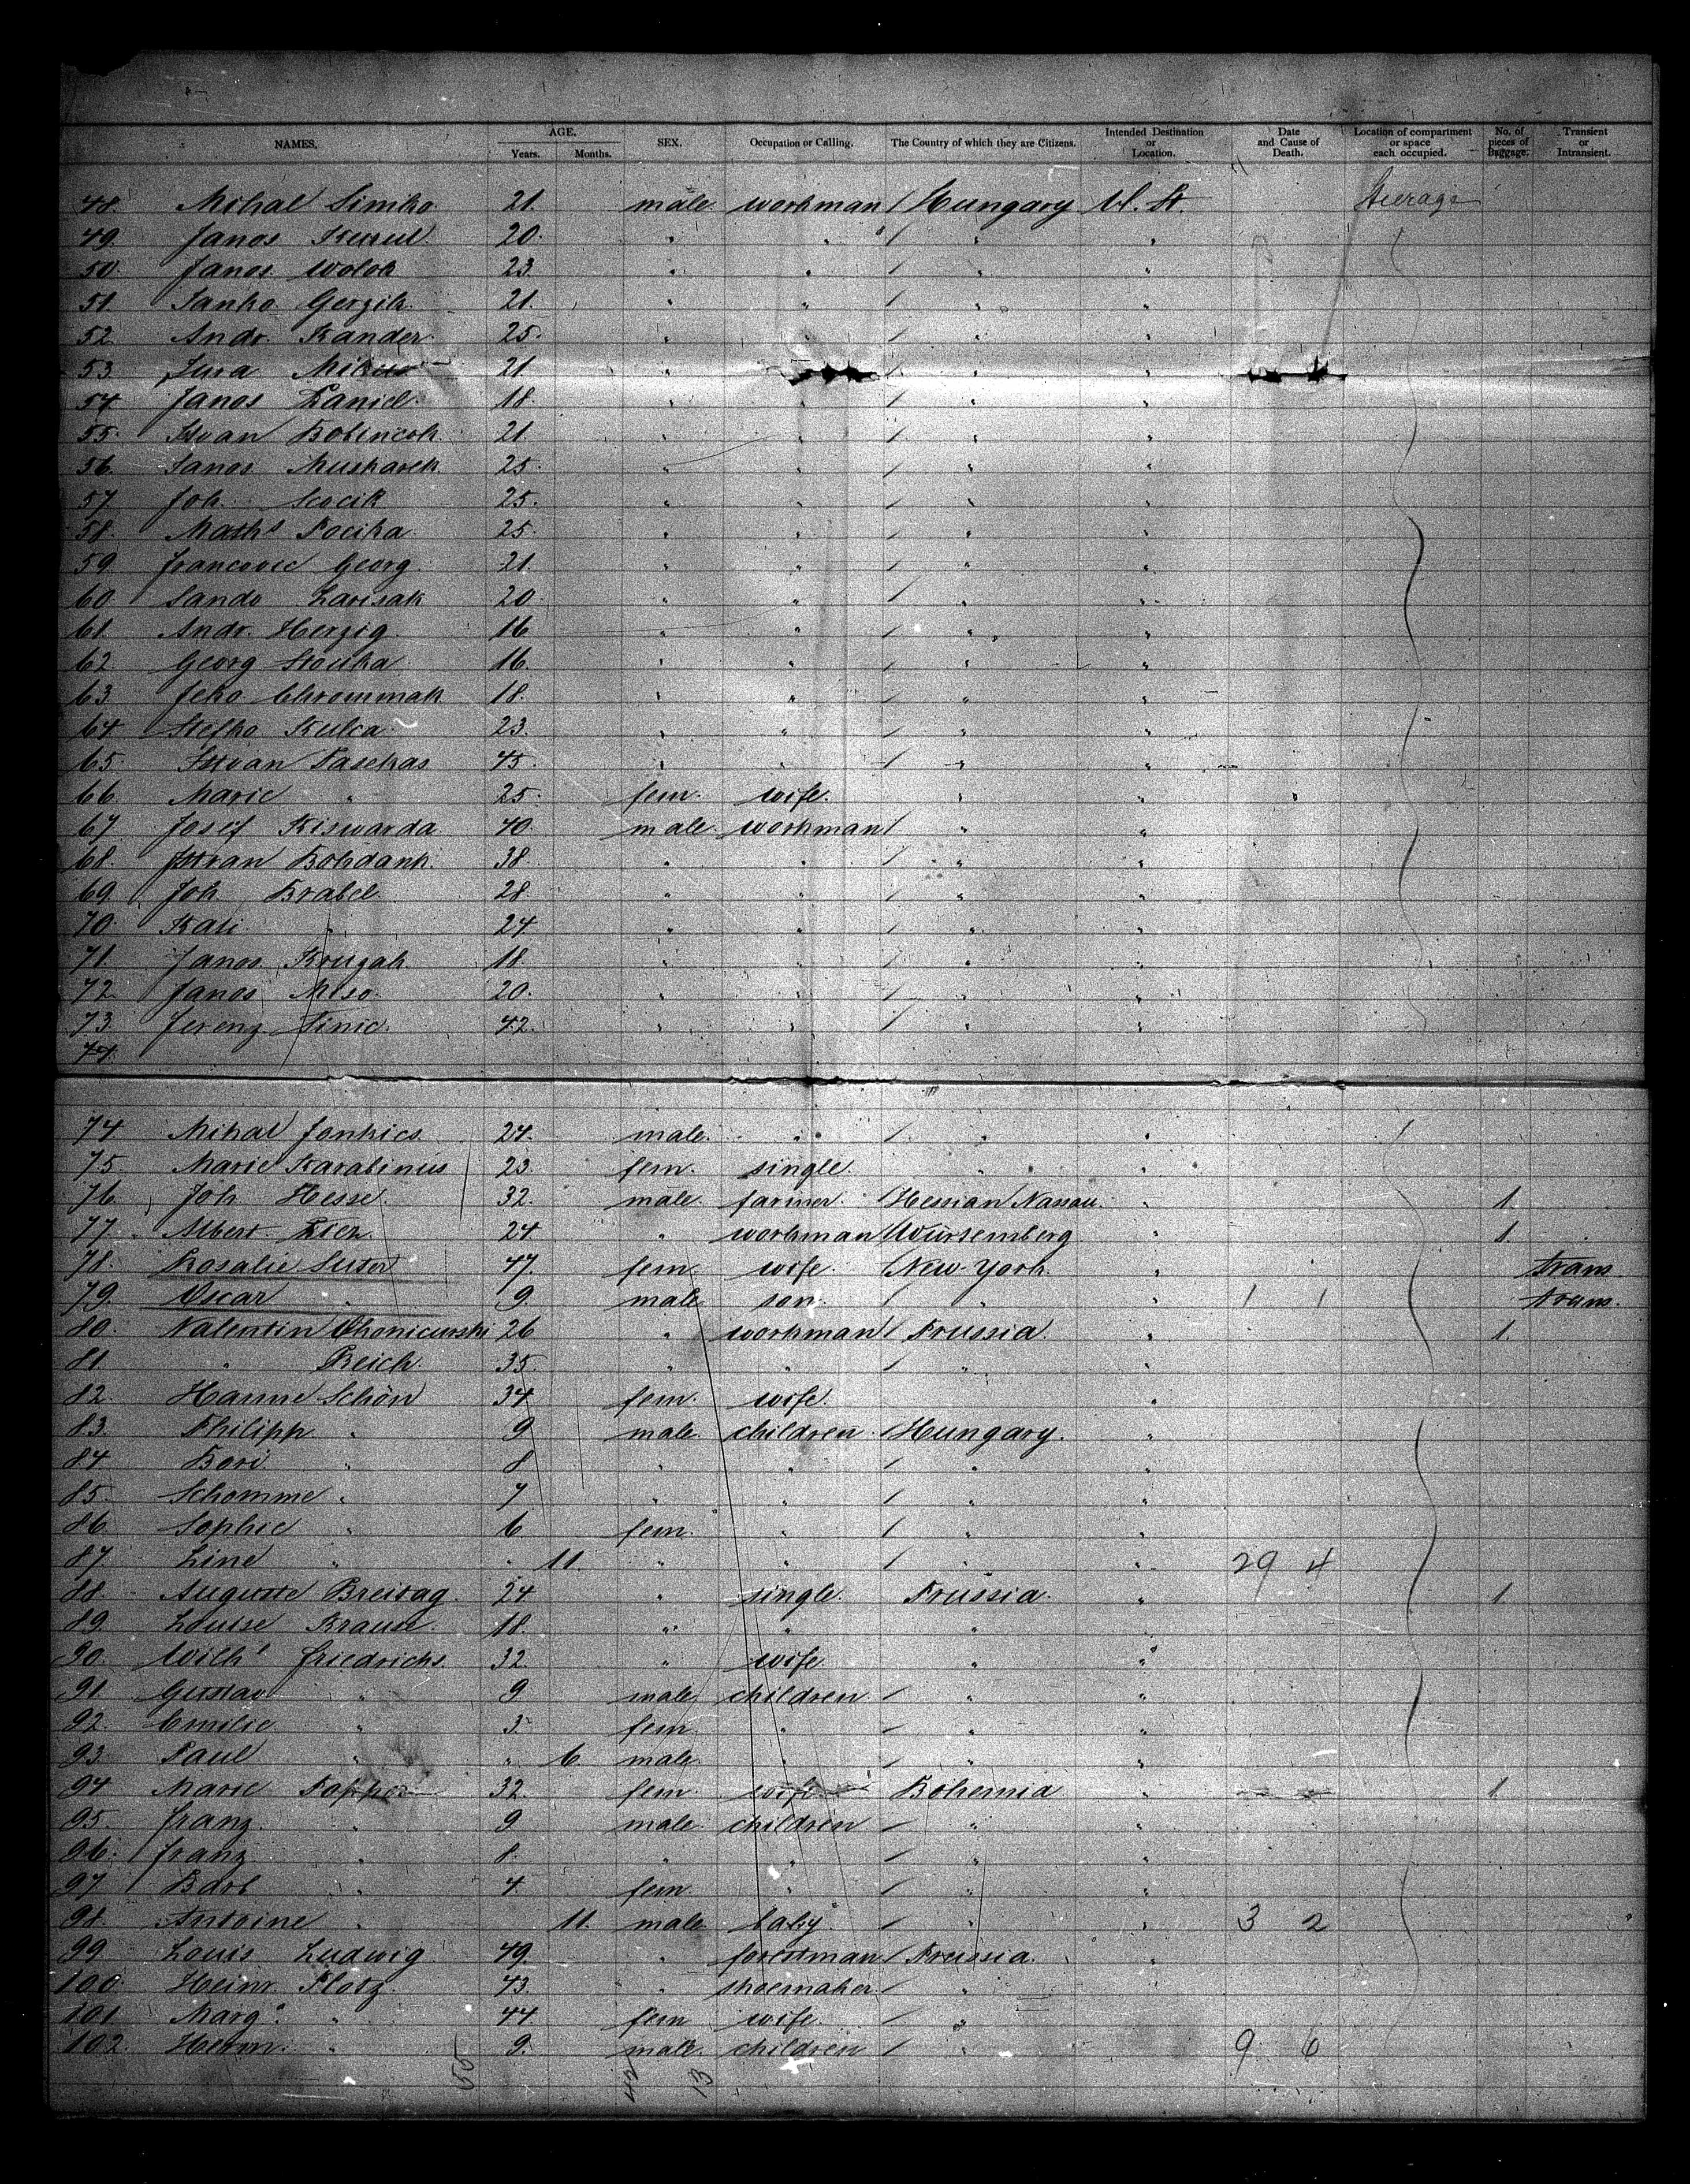 NAMES. AGE. Years. Months. SEX. Occupation or Calling. The Country of which they are Citizens. Intended Destination or Location. Date and Cause of Death. Location of compartment or space each occupied. No. of pieces of Baggage. Transient or Intransient.
48. Mihal Simko 21. male workman Hungary U. St. Steerage
49. Janos 20. " " " "
50. Janos Woloh 23 " " " "
51. Janko Gerzih 21. " " " "
52. Andr. Kander 25. " " " "
53. Jura 21 " " " "
54. Janos Daniel 18. " " " "
55. Istvan 21 " " " "
56. Janos Musharek 25. " " " "
57. Joh. 25. " " " "
58. Maths Pociha 25. " " " "
59. Francovic Georg 21. " " " "
60. Sando Larisak 20 " " " "
61. Andr. Herzig 16 " " " "
62. Georg Stouka 16. " " " "
63. Feko 18. " " " "
64. Stefko Kulca 23. " " " "
65. Istvan Paschas 45. " " " "
66. Marie " 25. fem. wife. " "
67. Josef Kiswarda 40. male. workman " "
68. Istvan Bohdank. 38 " " " "
69. Joh Brabel. 28. " " " "
70. Kati " 24. " " " "
71. Janos Krugah. 18. " " " "
72. Janos Miso. 20. " " " "
73. Ferenz Sinic. 42. " " " "
74.
74. Mihal Jonkics 24. male. " " "
75. Marie Karabinus 23. fem. single " "
76. Joh Hesse. 32. male. farmer. Hessian Nassau. " 1.
77. Albert 24 " workman Würtemberg " 1.
78. Rosalie Suter 47. fem wife. New York. " trans
79. Oscar " 9. male son. " " 1 1 trans.
80. Valentin 26 " workman Prussia. " 1.
81. " Reich. 35. " " " "
82. Hanne Schön 34 fem. wife. "
83. Philipp " 9 male children Hungary. "
84. Bori " 8 " " " "
85. Schomme " 7 " " " "
86. Sophie " 6 fem. " " "
87. Line " " 11. " " " " 29 4
88. Auguste Breitag. 24 " single. Prussia. " 1
89. Louise Krause. 18. " " " "
90. Wilh' Friedrichs. 32. " wife " "
91. Gustav " 9 male children. " "
92. Emilie " 3 fem. " " "
93. Paul " " 6. male. " " "
94. Marie Popper 32. fem. wife Bohemia " 1
95. Franz. " 9 male. children " "
96. Franz " 8. " " " "
97. Barb " 4. fem. " " "
98. Antoine " 11. male baby " " 3 2
99. Louis Ludwig 49. " forestman Prussia. "
100. Heinr. Plotz. 43. " shoemaker "
101. Marg. " 44. fem wife. "
102. Herm. " 9. male. children " 9 6
55 42 13